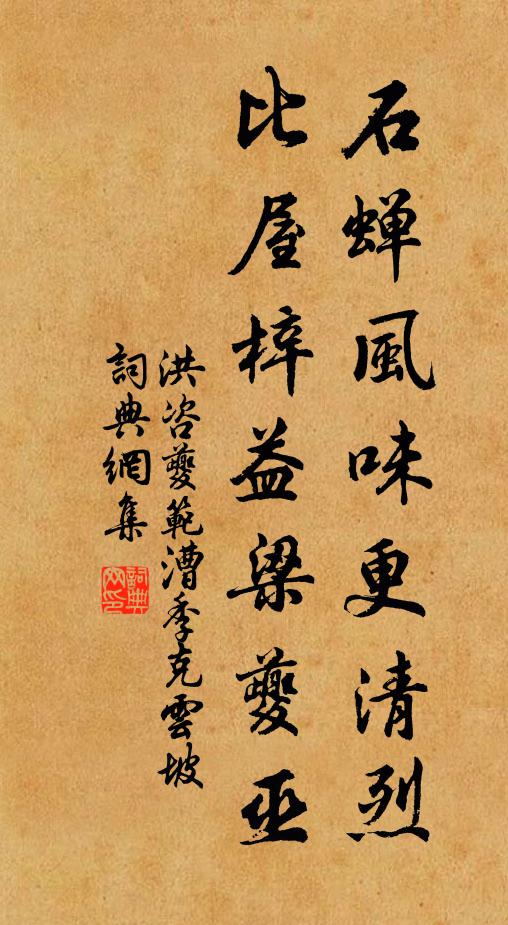 石蝉風味更清烈
比屋梓益梁夔巫
洪咨夔範漕季克雲坡
詞典網集
詞典網印